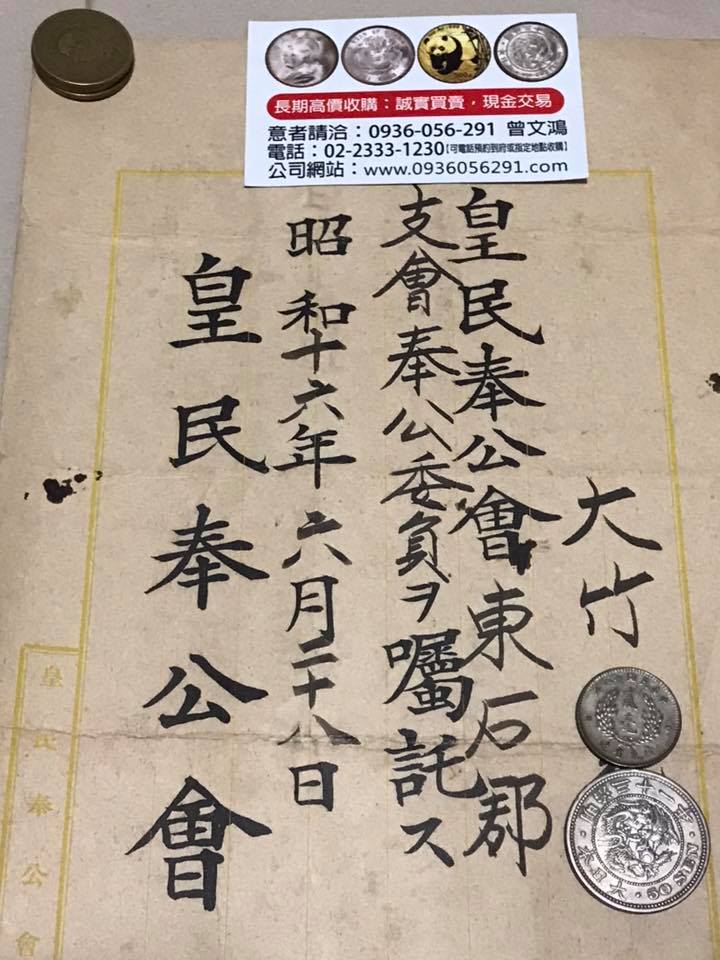 長期高價收購：誠實買賣，現金交易
意者請洽：0936-056-291 曾文鴻
電話：02-2333-1230【可電話預約到府或指定地點收購】
公司網站：www.0936056291.com
大竹
皇民奉公會東石郡
支會奉公委員ヲ囑託ス
昭和十六年六月二十八日
皇民奉公會
皇民奉公會
50 SEN